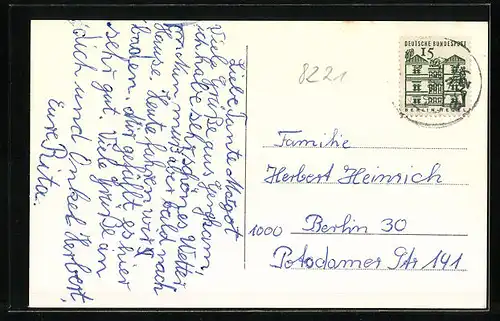 Liebe Tante Margot
Viele Grüße aus
ich habe sehr schönes Wetter
muß aber bald nach
Hause. Heute fahren wir
baden. Mir gefällt es hier
sehr gut. Viele Grüße an
Dich und Onkel Herbert,
Eure Rita.
8221
DEUTSCHE BUNDESPOST
15
BERLIN-TEGEL
Familie
Herbert Heinrich
1000 Berlin 30
Potsdamer Str 141